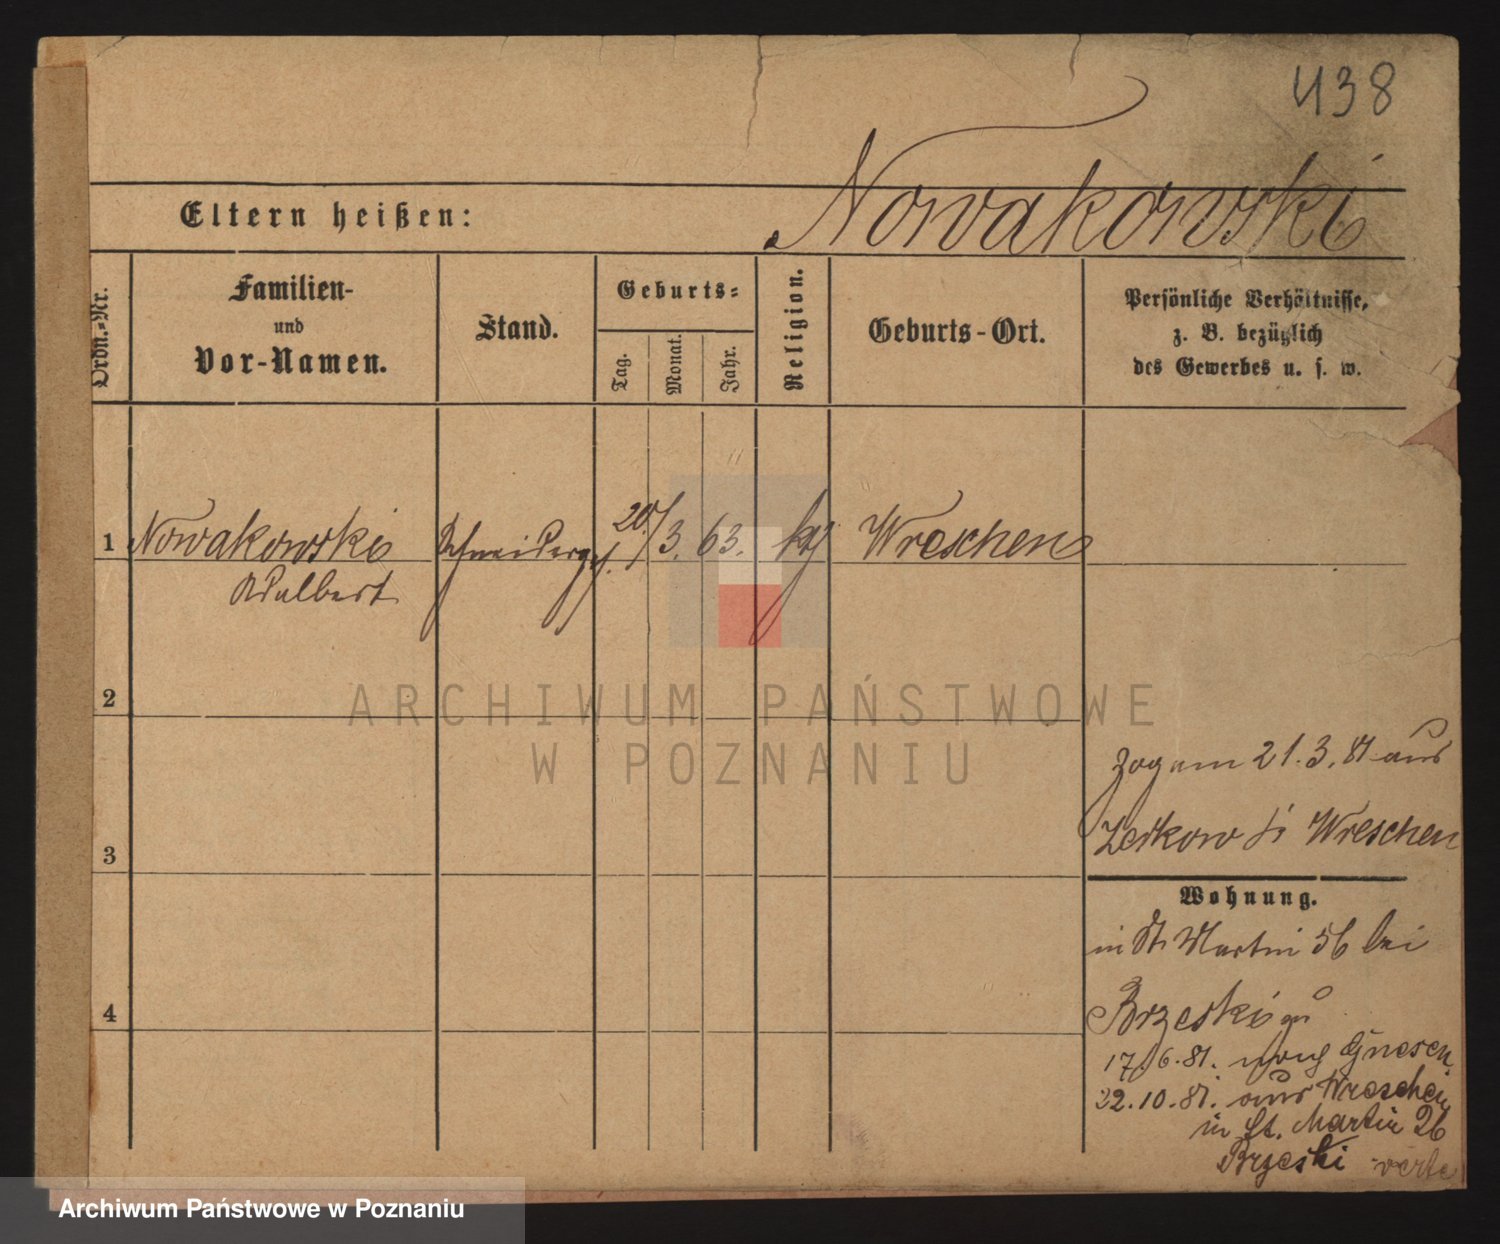 438
Nowakowski
Eltern heißen:
Ordn.-Nr.
Familien-
und
Vor-Namen.
Stand.
Geburts-
Tag.
Monat.
Jahr.
Religion.
Geburts-Ort.
Persönliche Verhältnisse,
z. B. bezüglich
des Gewerbes u. s. w.
1 Nowakowski Schneiderges. 20/3. 63. kþ Wreschen
Adalbert
2
ARCHIWUM PAŃSTWOWE
W POZNANIU
zog am 21.3.81 aus
Zerkow Kr Wreschen
3
Wohnung.
in St. Martin 56 bei
Brzeski zu
4
17/6.81. nach Gnesen
22.10.81. aus Wreschen
in St. Martin 26
Brzeski verte
Archiwum Państwowe w Poznaniu